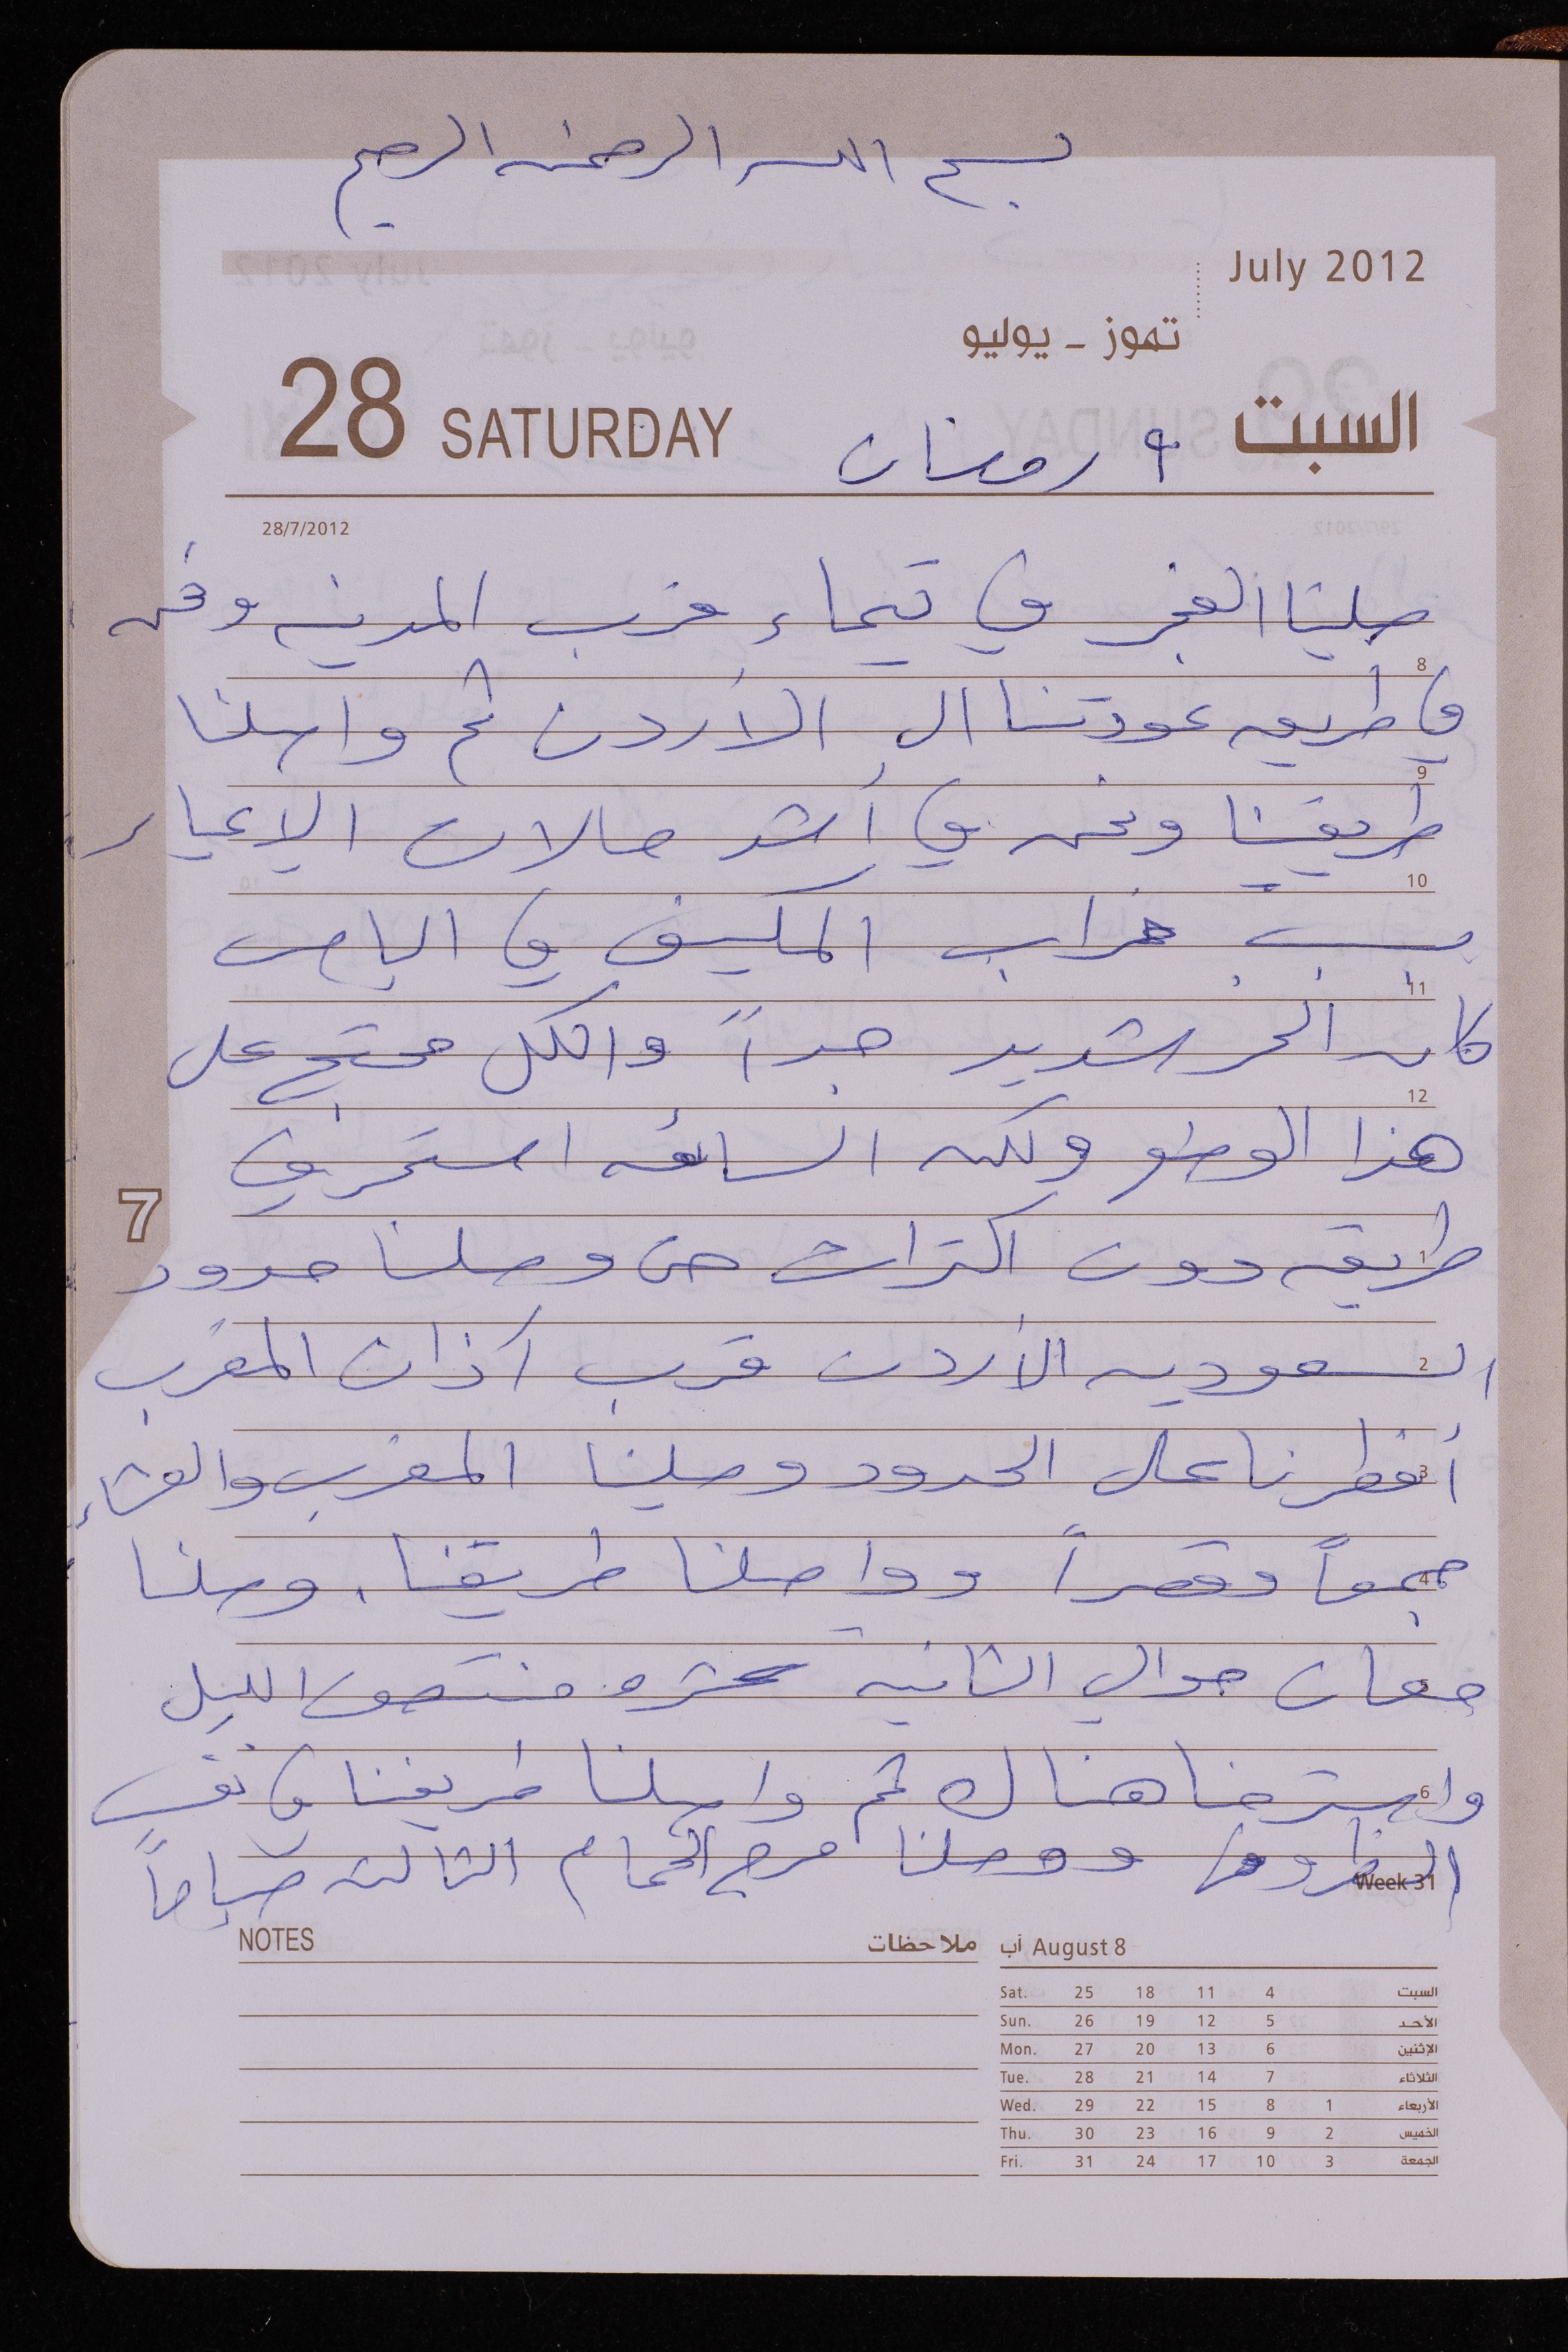 بسم الله الرحمن الرحيم
July 2012
تموز - يوليو
28 SATURDAY ٩ رمضان السبت
28/7/2012
صلينا الفجر في تيماء قرب المدينه ونحن
8
في طريق عودتنا الى الأردن ثم واصلنا
9
طريقنا ونحن في أشد حالات الإعياء
10
بسبب خراب المكيف في الباص
11
كان الحر شديد جداً والكل محتج على
12
هذا الوضع ولكن السائق استمر في
7
طريقه دون اكتراث حتى وصلنا حدود
1
السعوديه الأردن قرب آذان المغرب
2
أفطرنا على الحدود وصلينا المغرب والعشاء
3
جمعاً وقصراً وواصلنا طريقنا. وصلنا
4
معان حوالي الثانيه عشره منتصف الليل
واسترحنا هناك ثم واصلنا طريقنا في نفس
6
الظروف ووصلنا مرج الحمام الثالثه صباحاً
Week 31
NOTES ملاحظات
آب August 8
Sat. 25 18 11 4 السبت
Sun. 26 19 12 5 الأحد
Mon. 27 20 13 6 الإثنين
Tue. 28 21 14 7 الثلاثاء
Wed. 29 22 15 8 1 الأربعاء
Thu. 30 23 16 9 2 الخميس
Fri. 31 24 17 10 3 الجمعة